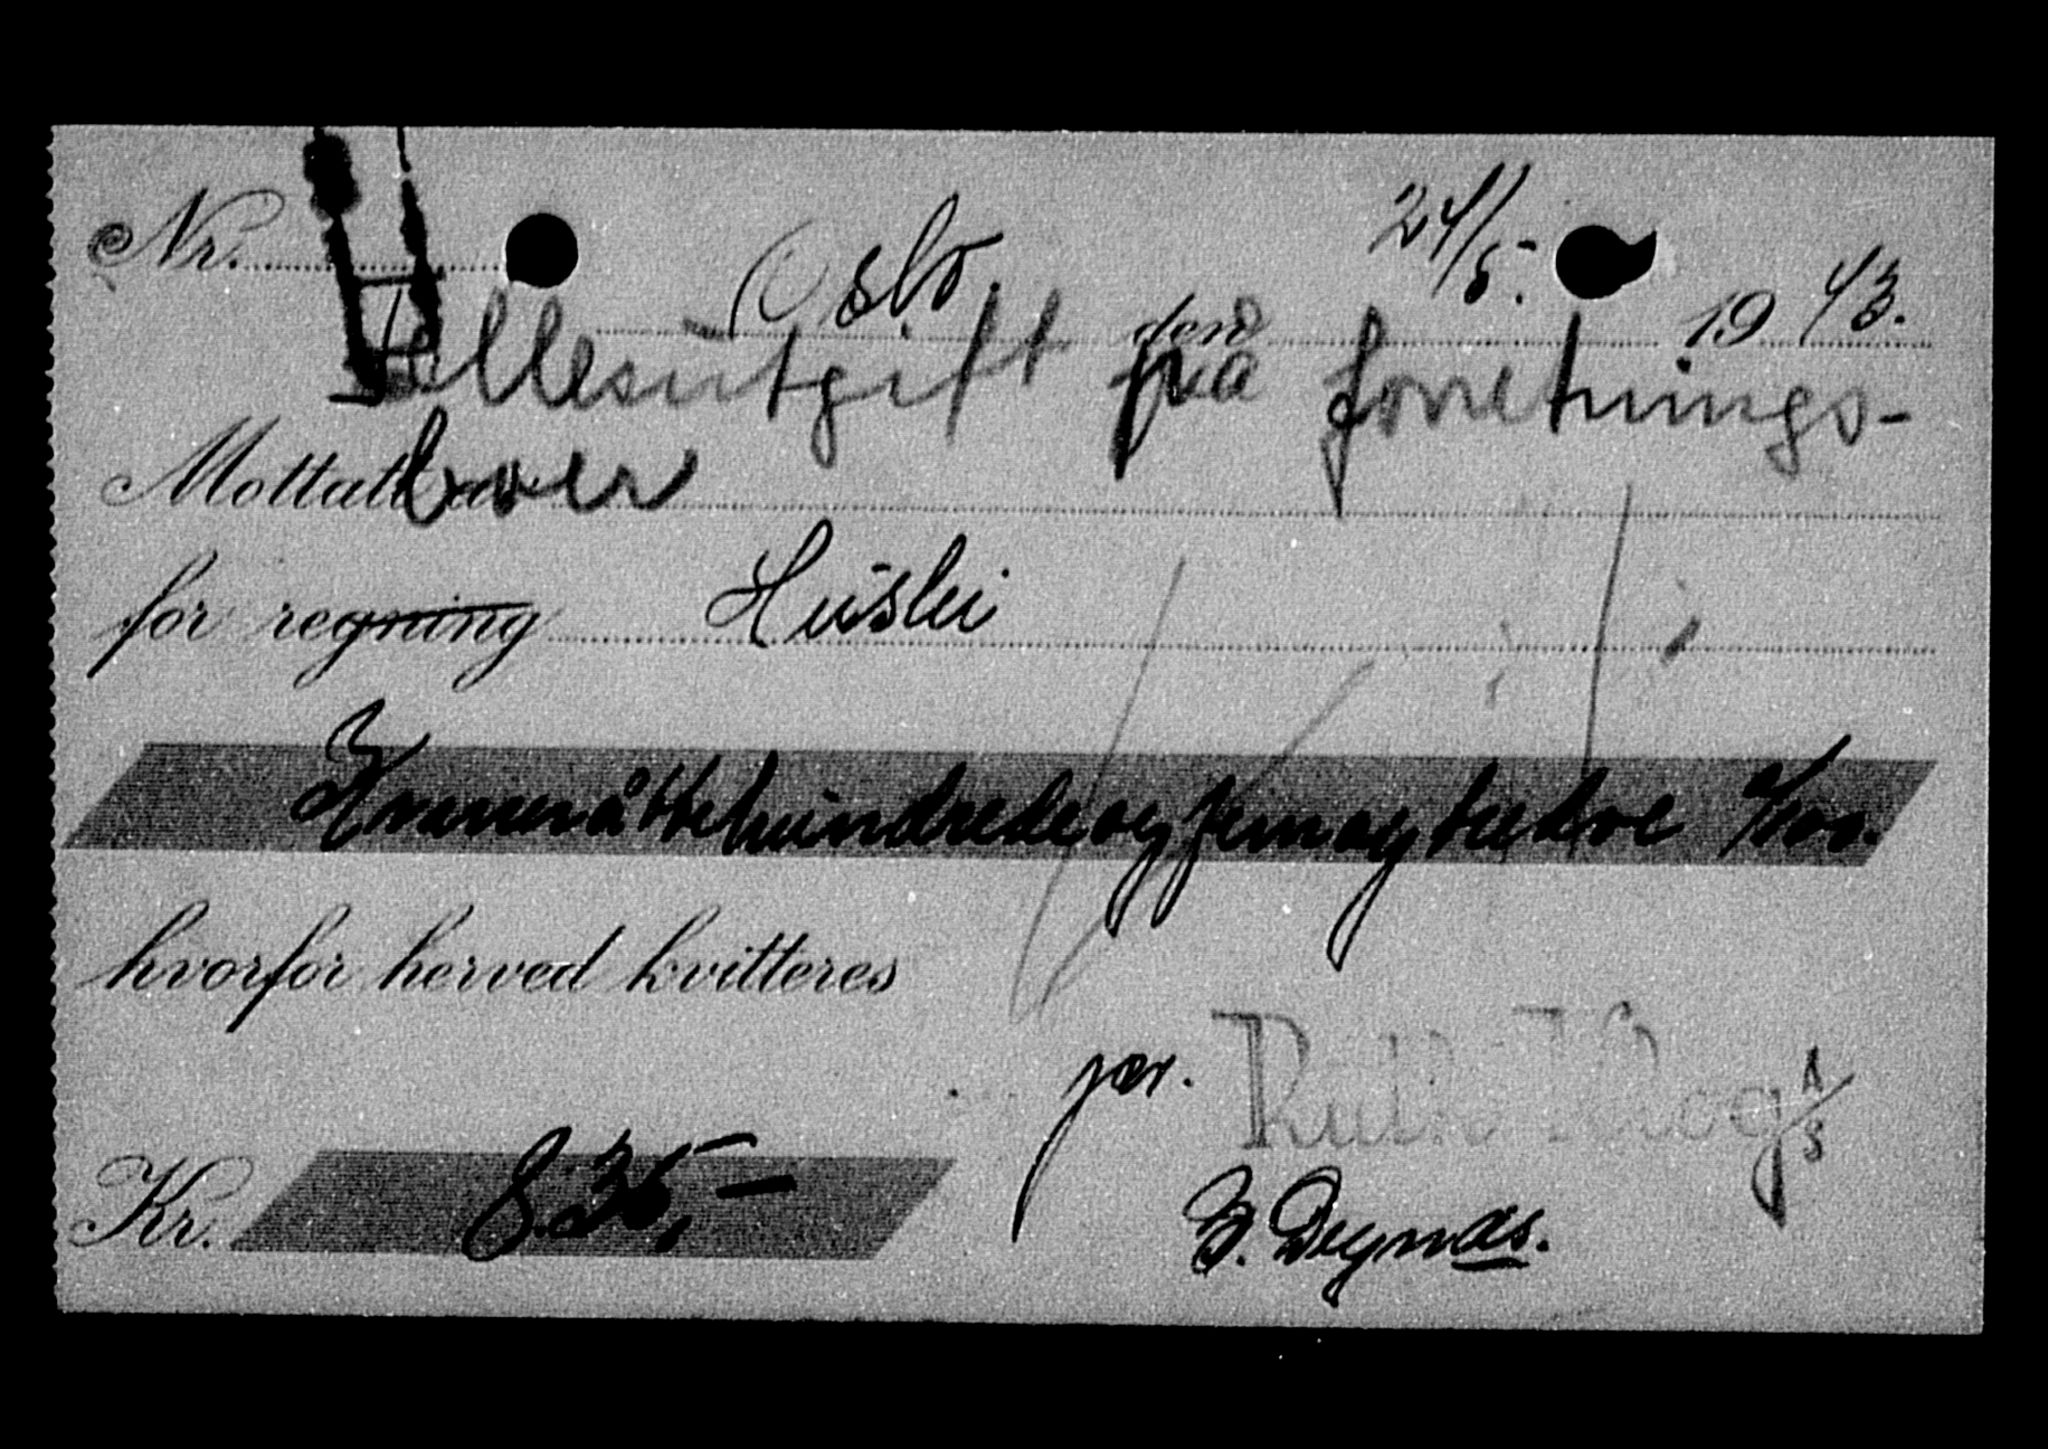 Nr.
Oslo. den 24/5. 1943.
Fellesutgift fra forretnings-
Mottatt av
for regning Husleie
Kroner åttehundredeogfemogtredve 0/100.
hvorfor herved kvitteres
pr. Ruth Krog A/S
Kr. 835,—